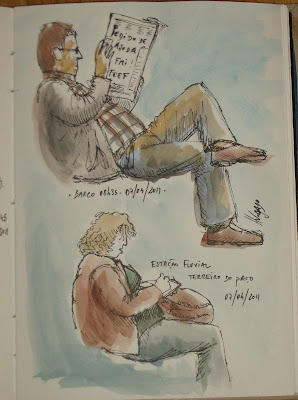 PEDIDO DE
AJUDA
FMI
FEEF
· BARCO 08h35 · 07/04/2011 ·
ESTAÇÃO FLUVIAL
TERREIRO DO PAÇO
07/04/2011